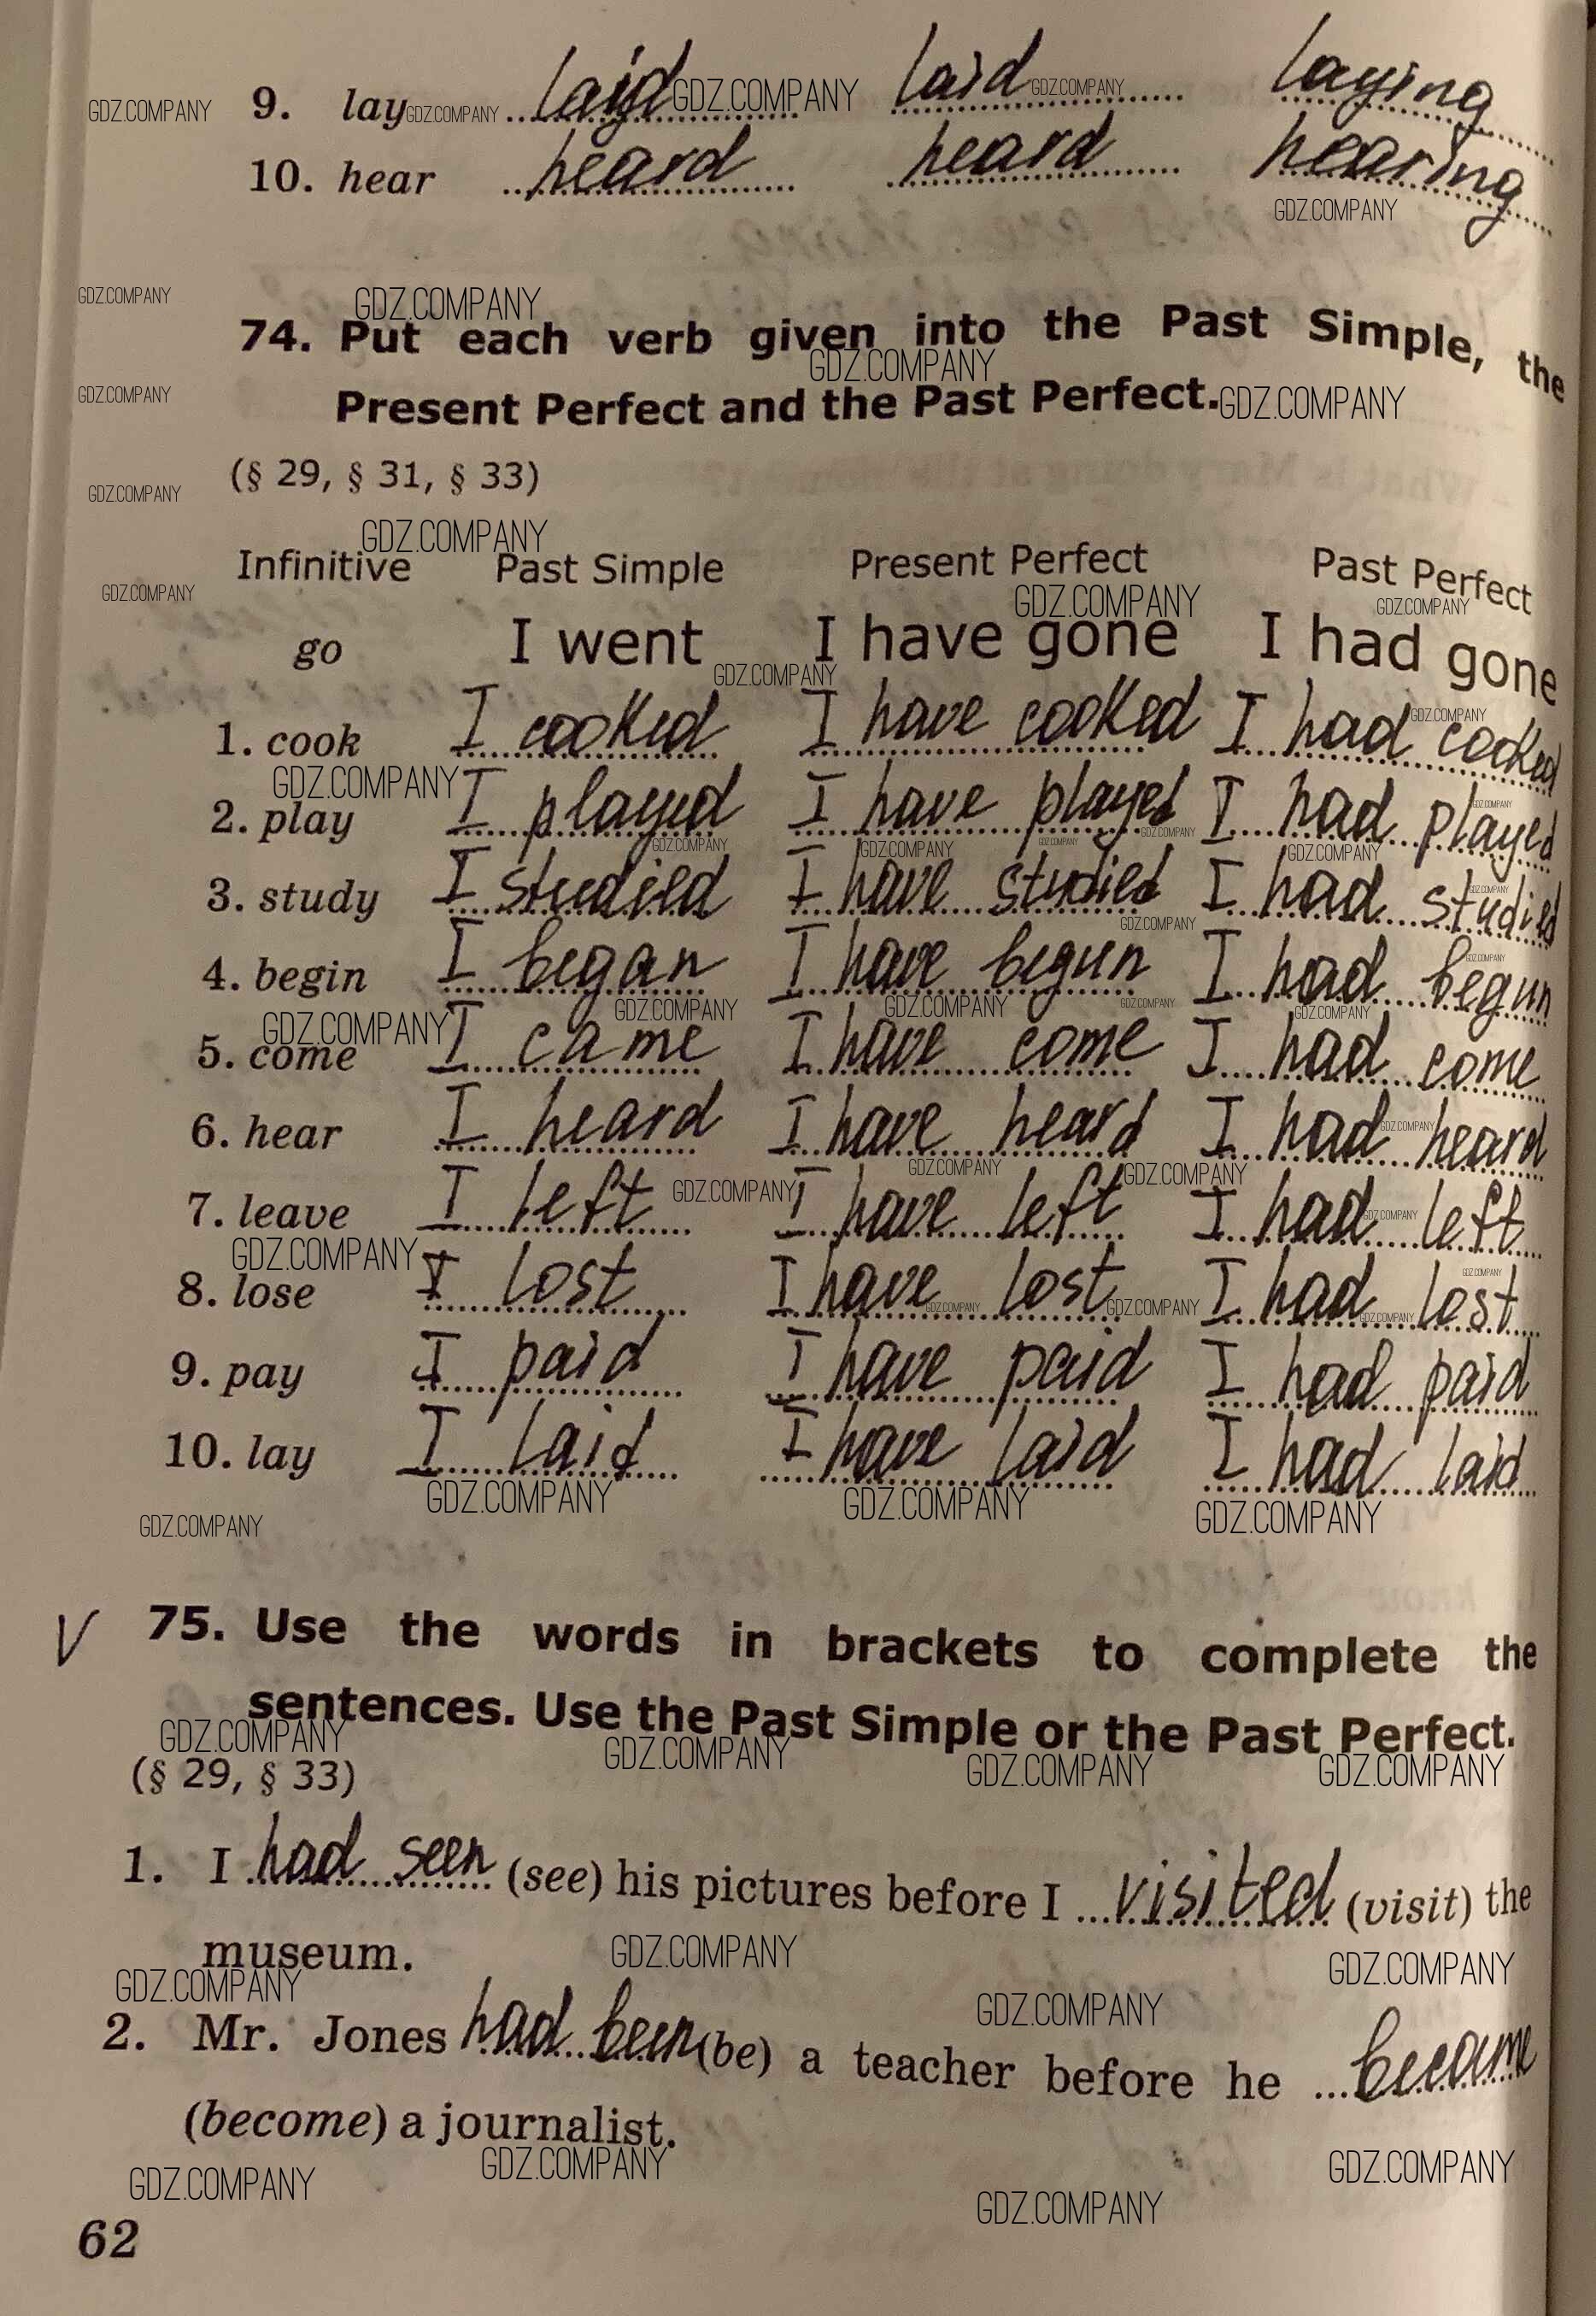 9. lay laid laid laying
10. hear heard heard hearing
74. Put each verb given into the Past Simple, the
Present Perfect and the Past Perfect.
(§ 29, § 31, § 33)
Infinitive Past Simple Present Perfect Past Perfect
go I went I have gone I had gone
1. cook I cooked I have cooked I had cooked
2. play I played I have played I had played
3. study I studied I have studied I had studied
4. begin I began I have begun I had begun
5. come I came I have come I had come
6. hear I heard I have heard I had heard
7. leave I left I have left I had left
8. lose I lost I have lost I had lost
9. pay I paid I have paid I had paid
10. lay I laid I have laid I had laid
V 75. Use the words in brackets to complete the
sentences. Use the Past Simple or the Past Perfect.
(§ 29, § 33)
1. I had seen (see) his pictures before I visited (visit) the
museum.
2. Mr. Jones had been (be) a teacher before he became
(become) a journalist.
62
GDZ.COMPANY